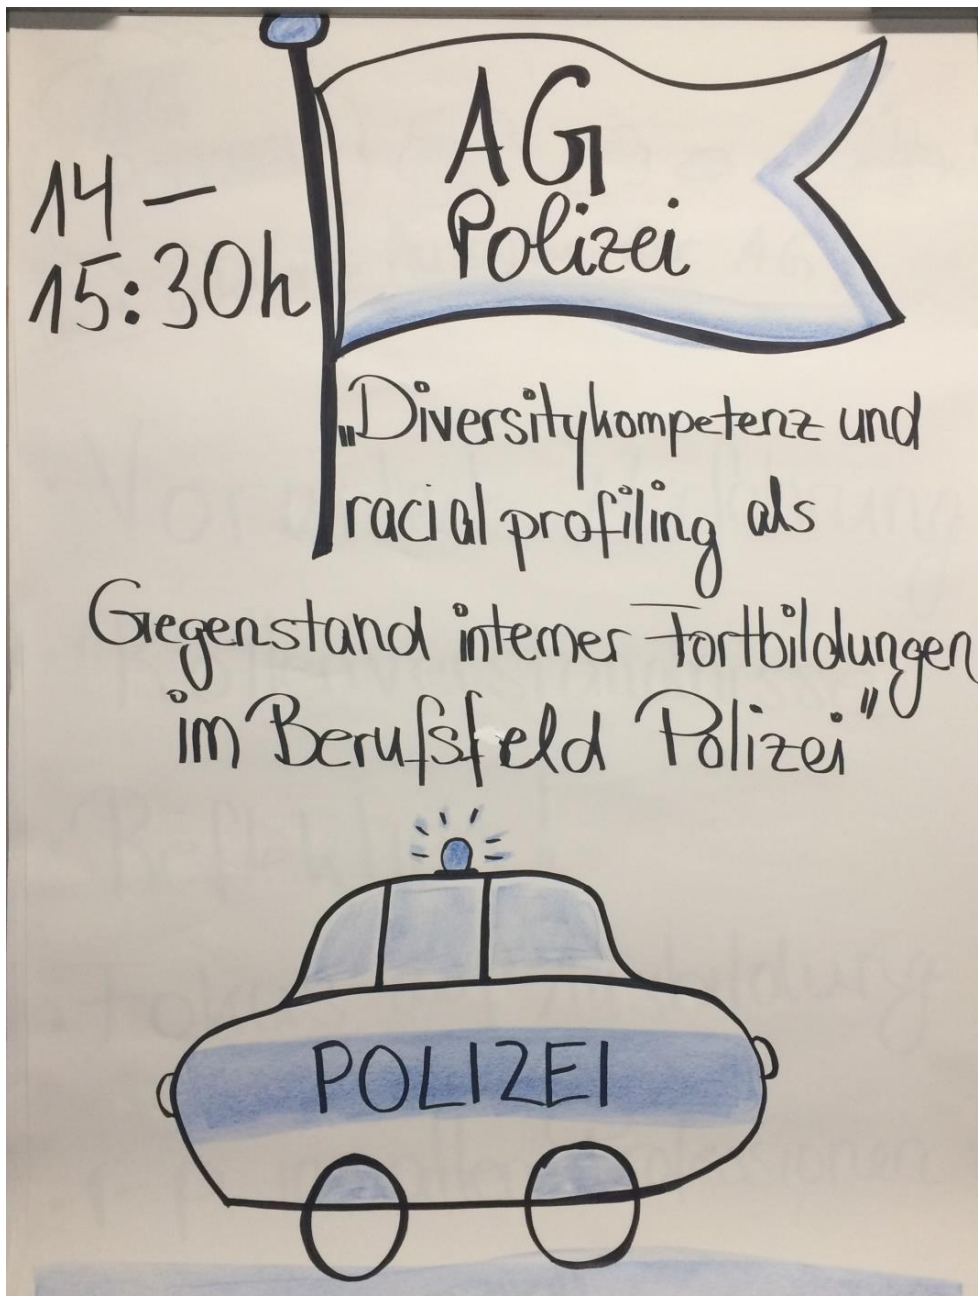 14 –
15:30h
AG
Polizei
„Diversitykompetenz und
racial profiling als
Gegenstand interner Fortbildungen
im Berufsfeld Polizei"
POLIZEI